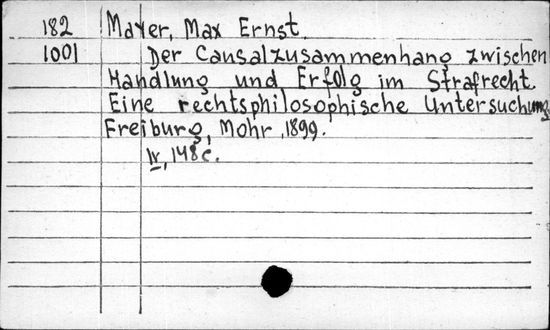 182 Mayer, Max Ernst.
1001 Der Causalzusammenhang zwischen
Handlung und Erfolg im Strafrecht.
Eine rechtsphilosophische Untersuchung
Freiburg, Mohr, 1899.
IV, 148 c.